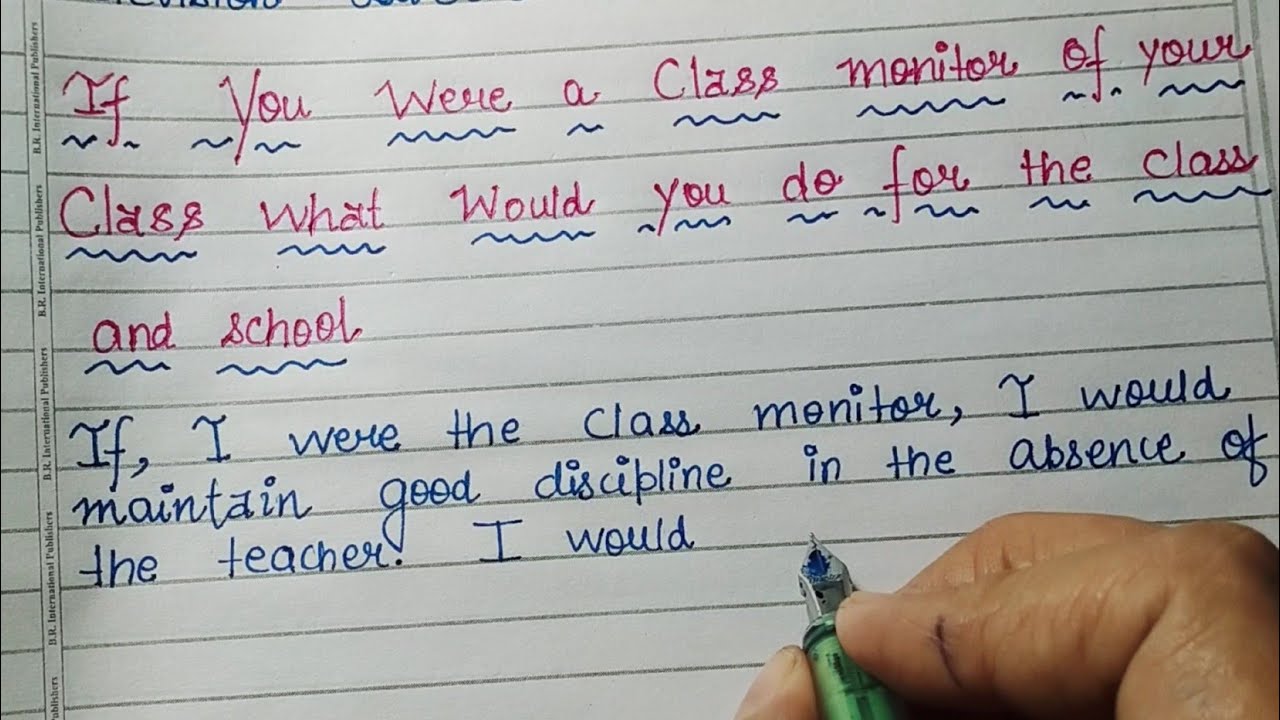 If You Were a Class monitor of your
Class what Would you do for the class
and school
If, I were the class monitor, I would
maintain good discipline in the absence of
the teacher. I would
B.R. International Publishers
B.R. International Publishers
B.R. International Publishers
B.R. International Publishers
Publishers